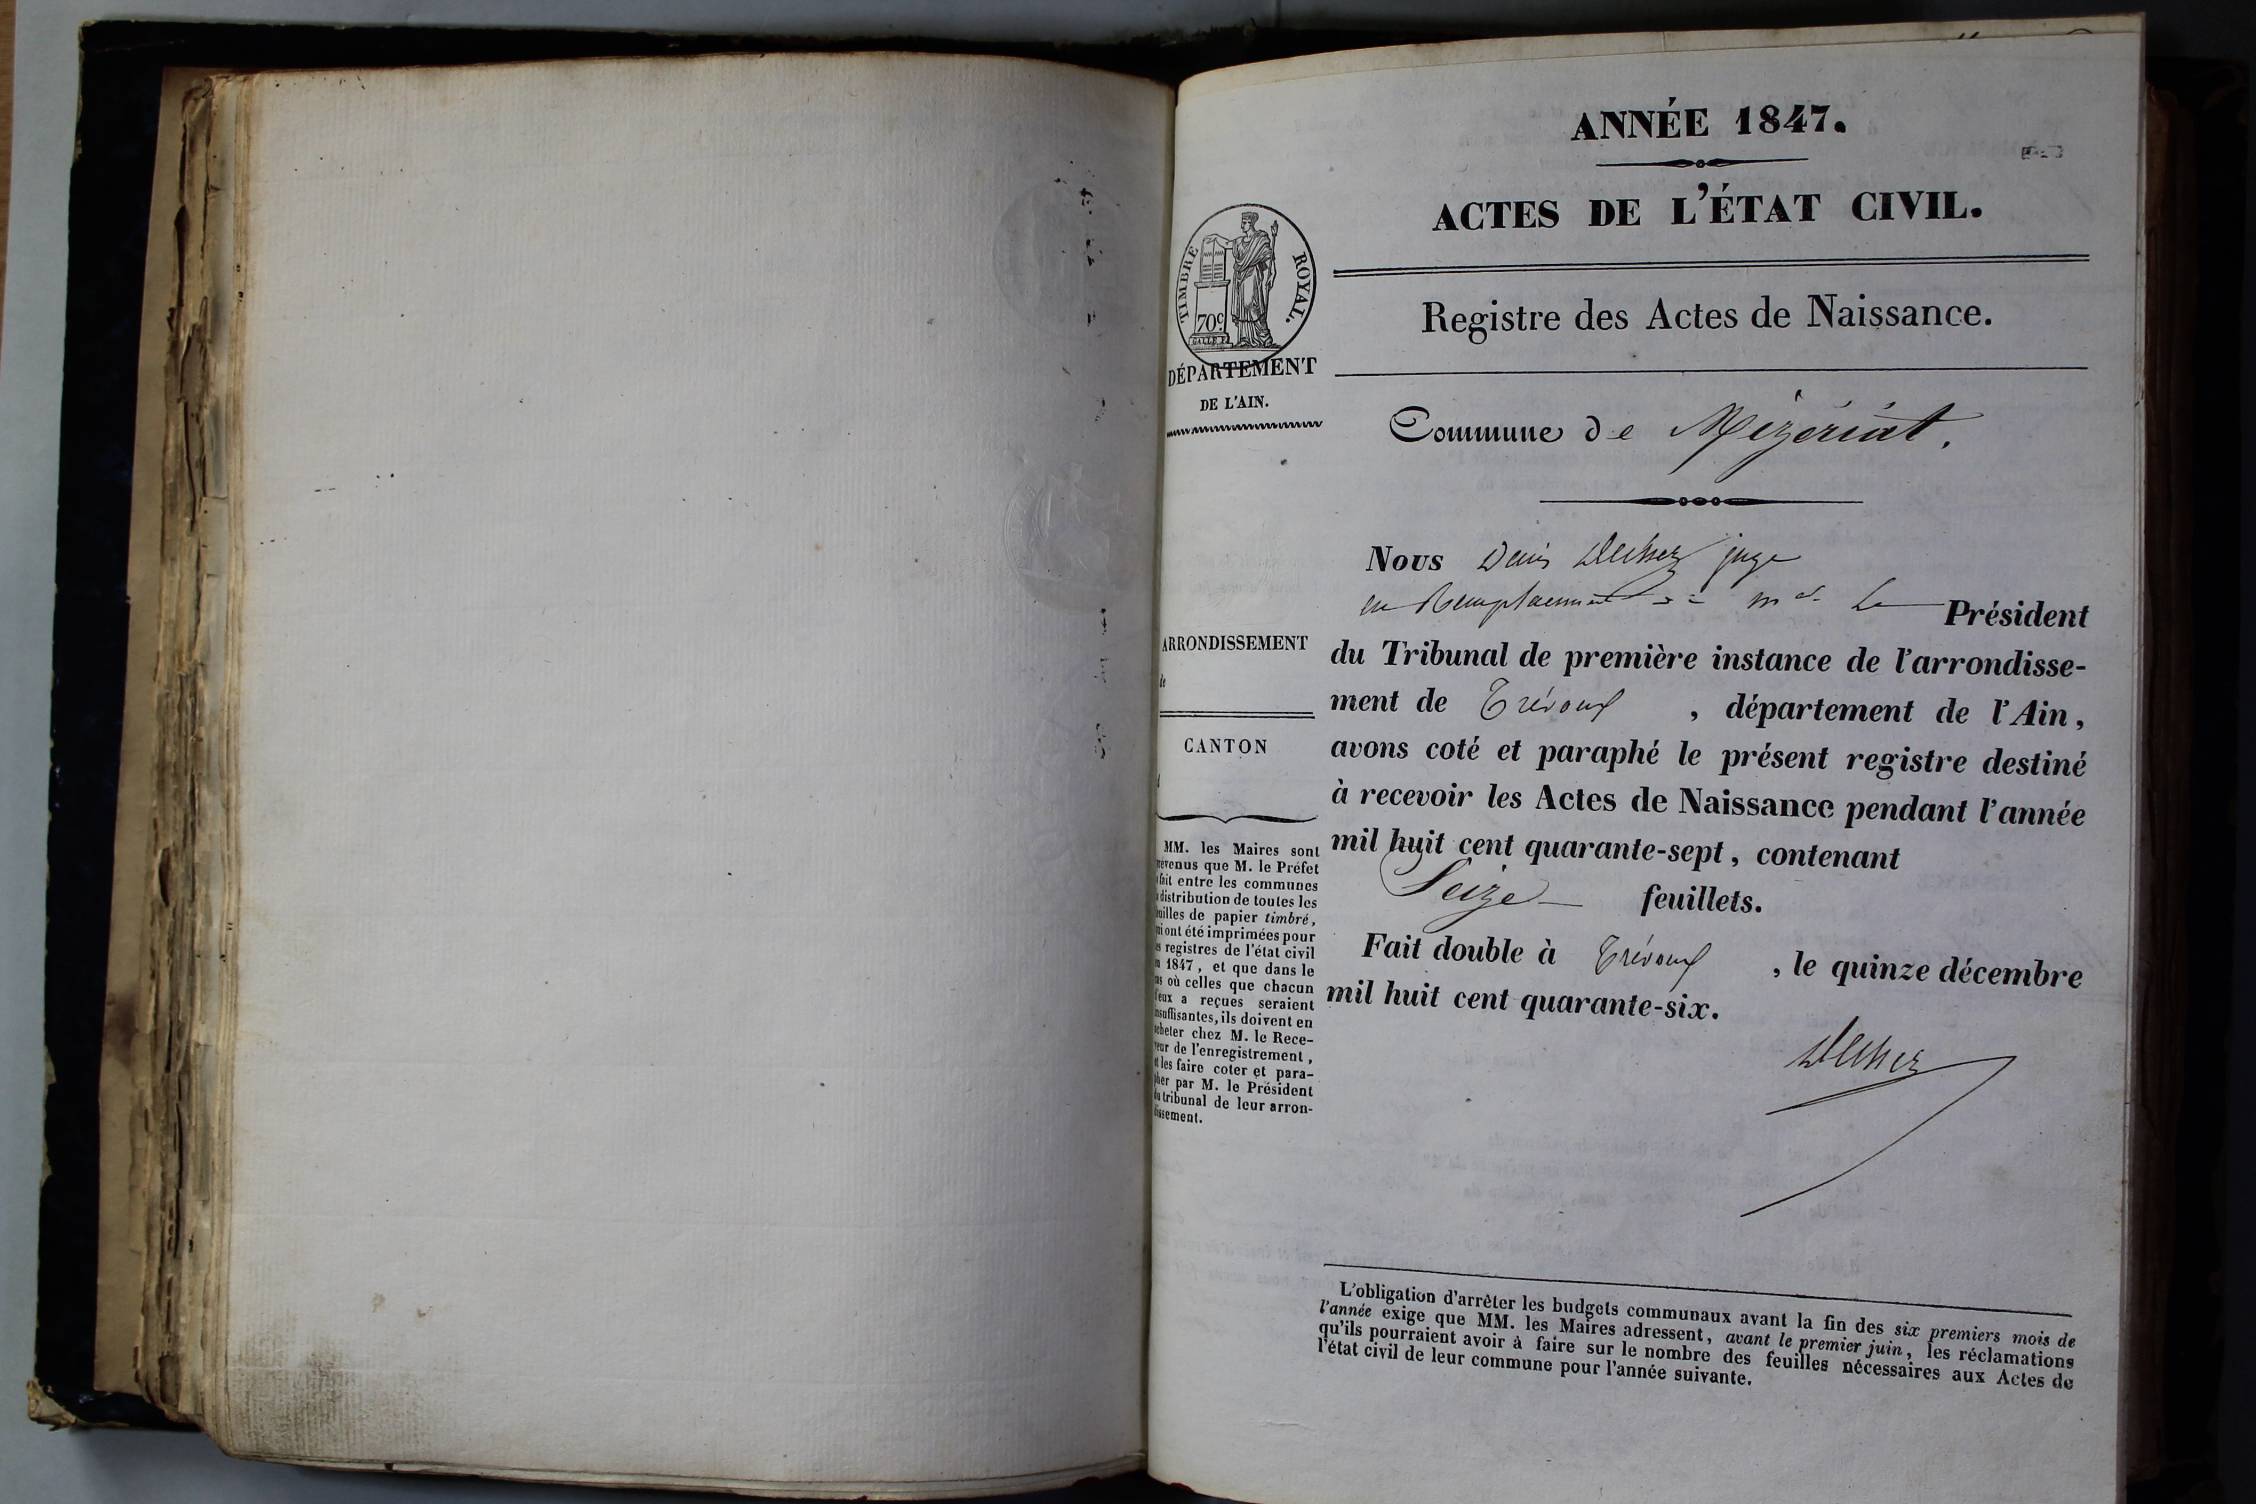 ANNÉE 1847.
ACTES DE L'ÉTAT CIVIL.
Registre des Actes de Naissance.
Commune de Mézériat.
TIMBRE ROYAL.
70c
DÉPARTEMENT
DE L'AIN.
ARRONDISSEMENT
de
CANTON
MM. les Maires sont
révenus que M. le Préfet
fait entre les communes
distribution de toutes les
euilles de papier timbré,
ui ont été imprimées pour
es registres de l'état civil
n 1847, et que dans le
as où celles que chacun
d'eux a reçues seraient
insuffisantes, ils doivent en
acheter chez M. le Rece-
veur de l'enregistrement,
et les faire coter et para-
pher par M. le Président
du tribunal de leur arron-
dissement.
Nous Denis juge
en Remplacement de mr. Le Président
du Tribunal de première instance de l'arrondisse-
ment de Trévoux, département de l'Ain,
avons coté et paraphé le présent registre destiné
à recevoir les Actes de Naissance pendant l'année
mil huit cent quarante-sept, contenant
Seize feuillets.
Fait double à Trévoux, le quinze décembre
mil huit cent quarante-six.
L'obligation d'arrêter les budgets communaux avant la fin des six premiers mois de
l'année exige que MM. les Maires adressent, avant le premier juin, les réclamations
qu'ils pourraient avoir à faire sur le nombre des feuilles nécessaires aux Actes de
l'état civil de leur commune pour l'année suivante.